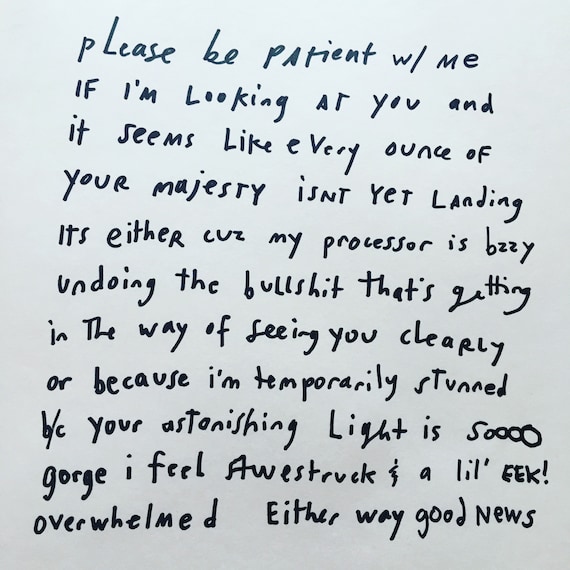 pLease be PAtient w/ Me
IF I'm Looking AT you and
it seems Like eVery ounce oF
YOUR majesty isNT YeT LAnding
ITS eitheR cuz my processor is bzzy
undoing the bullshit that's getting
in The way of seeing you cleaRLy
or because i'm temporarily sTunned
b/c your astonishing Light is soooo
gorge i feel Awestruck & a lil' EEK!
overwhelmed Either way good News